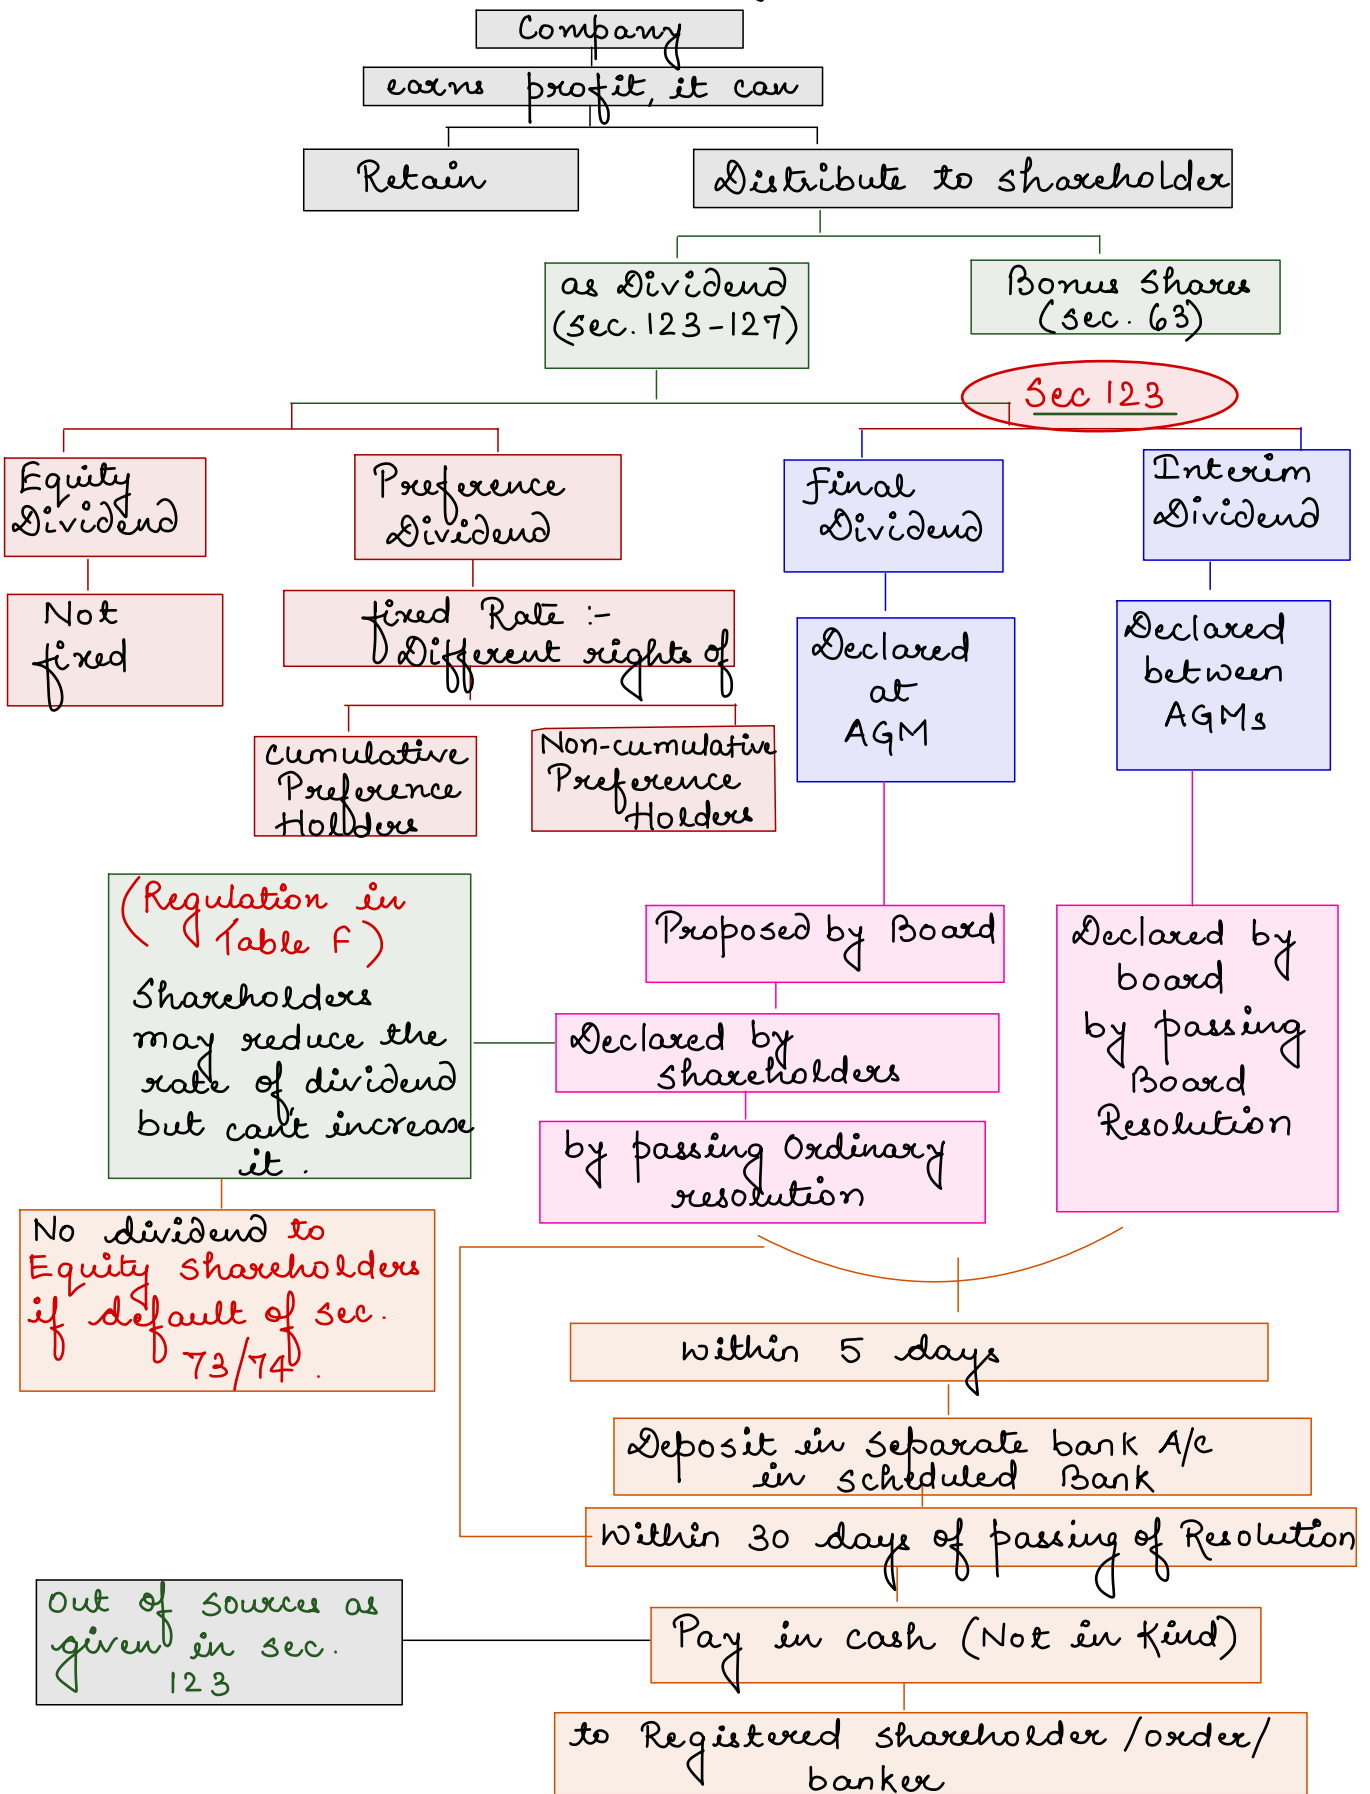 Company
earns profit, it can
Retain
Distribute to shareholder
as Dividend
(sec. 123-127)
Bonus Shares
(sec. 63)
Sec 123
Equity
Dividend
Preference
Dividend
Final
Dividend
Interim
Dividend
Not
fixed
fixed Rate :-
Different rights of
Declared
at
AGM
Declared
between
AGMs
Cumulative
Preference
Holders
Non-cumulative
Preference
Holders
(Regulation in
Table F)
Shareholders
may reduce the
rate of dividend
but can't increase
it.
Proposed by Board
Declared by
shareholders
by passing Ordinary
resolution
Declared by
board
by passing
Board
Resolution
No dividend to
Equity shareholders
if default of sec.
73/74.
within 5 days
Deposit in separate bank A/c
in scheduled Bank
within 30 days of passing of Resolution
Out of sources as
given in sec.
123
Pay in cash (Not in Kind)
to Registered shareholder/order/
banker